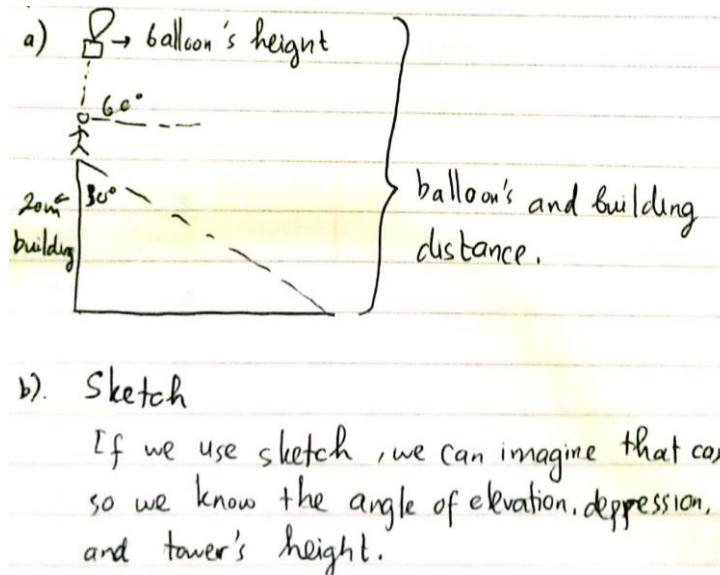 a) → balloon's height
60°
20m 30°
building
balloon's and building
distance.
b). Sketch
If we use sketch, we can imagine that cas
so we know the angle of elevation, deppession,
and tower's height.